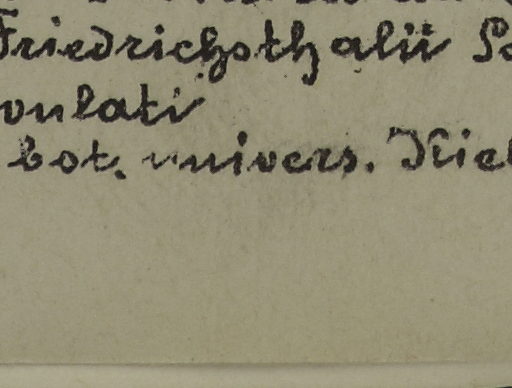 Friedrichsthalii
vulati
bot. univers. Kiel